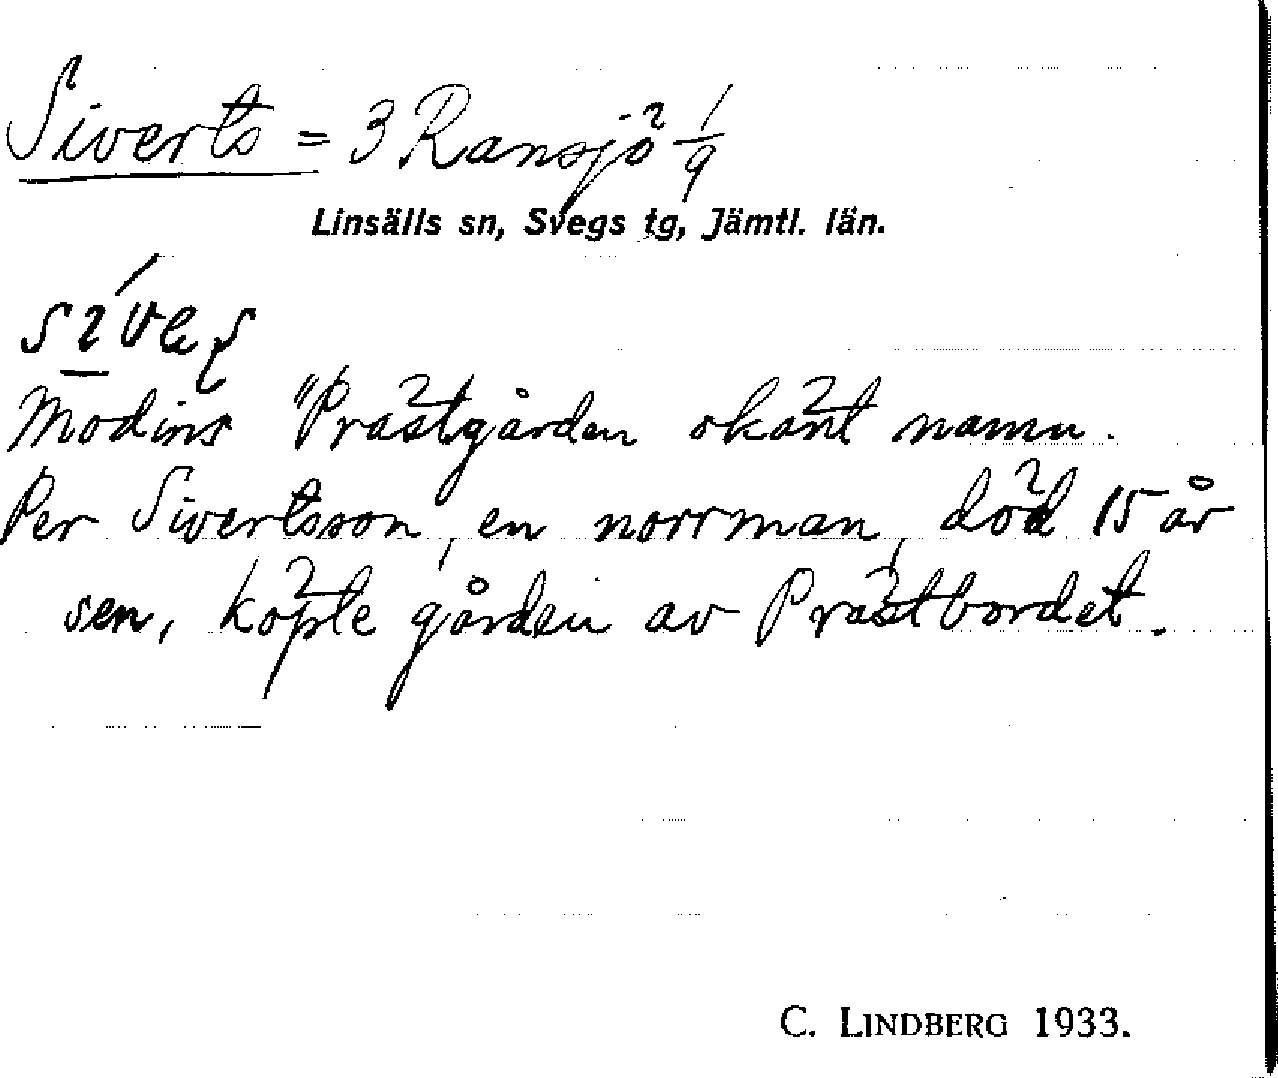 Siverts = 3 Ransjö 1/9
Linsälls sn, Svegs tg, Jämtl. län.
Modins "Prästgården okänt namn.
Per Sivertsson, en norrman, död 15 år
sen, köpte gården av Prästbordet.
C. LINDBERG 1933.